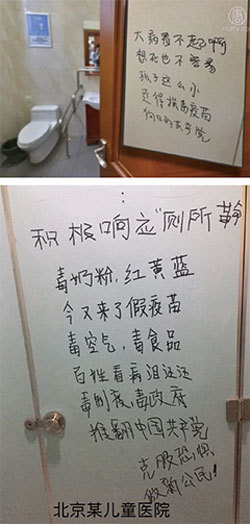 ntdtv.com
大病看不起啊
想死也不容易
孩子这么小
还得挨毒疫苗
狗日的共产党
积极响应"厕所革
毒奶粉,红黄蓝
今又来了假疫苗
毒空气,毒食品
百姓看病泪汪汪
毒制度,毒政府
推翻中国共产党
克服恐惧
做新公民!
北京某儿童医院